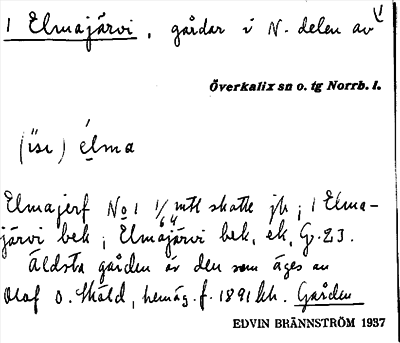 1 Elmajärvi, gårdar i N. delen av
Överkalix sn o. tg Norrb. l.
(isı) élma
Elmajerf No 1 1/64 mtl skatte jk; 1 Elma-
järvi bek; Elmajärvi bek, ek, G. 23.
Äldsta gården är den som äges av
Olof O. Sköld, hemäg. f. 1891 hh. Gården
EDVIN BRÄNNSTRÖM 1937